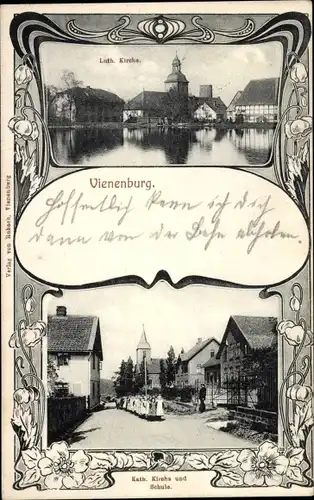 Luth. Kirche.
Vienenburg.
Hoffentlich kann ich dich
dann von der Bahn abholen.
Kath. Kirche und
Schule.
Verlag von Robach, Vienenburg